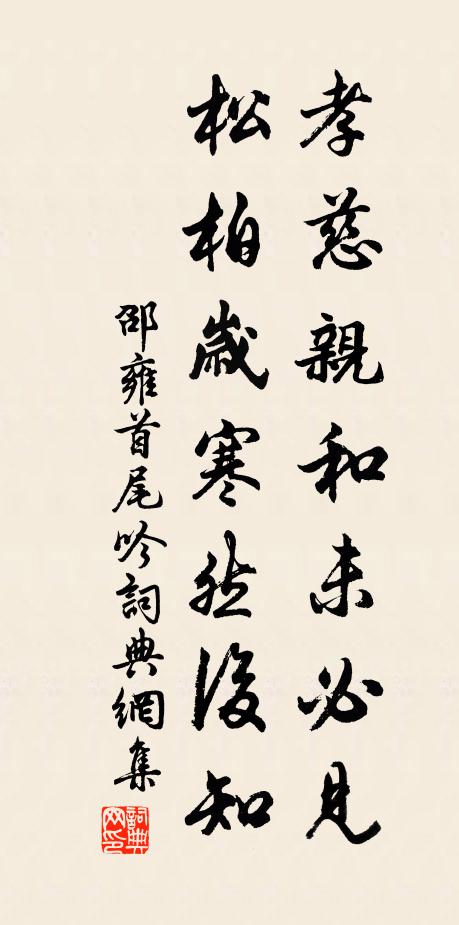 孝慈親和未必見
松柏歲寒然後知
邵雍首尾吟詞典網集
詞典
網印